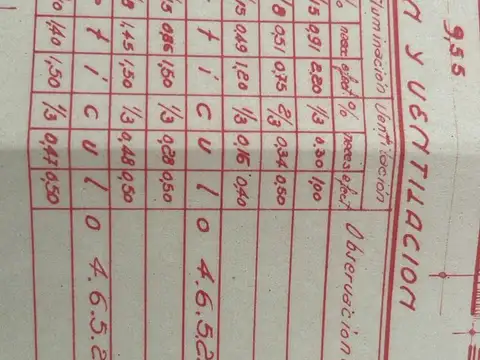 9,55
N Y VENTILACION
luminación Ventilación
% neces efect % neces efect Observacion
5 0,91 2,20 1/3 0.30 1,00
8 0,51 0,75 2/3 0,34 0,50
5 0,49 1,20 1/3 0,16 0,40
t í c u l o 4.6.5.2
5 0,86 1,50 1/3 0,28 0,50
8 1,45 1,50 1/3 0,48 0,50
t i c u l o 4.6.5.2
1,40 1,50 1/3 0,47 0,50